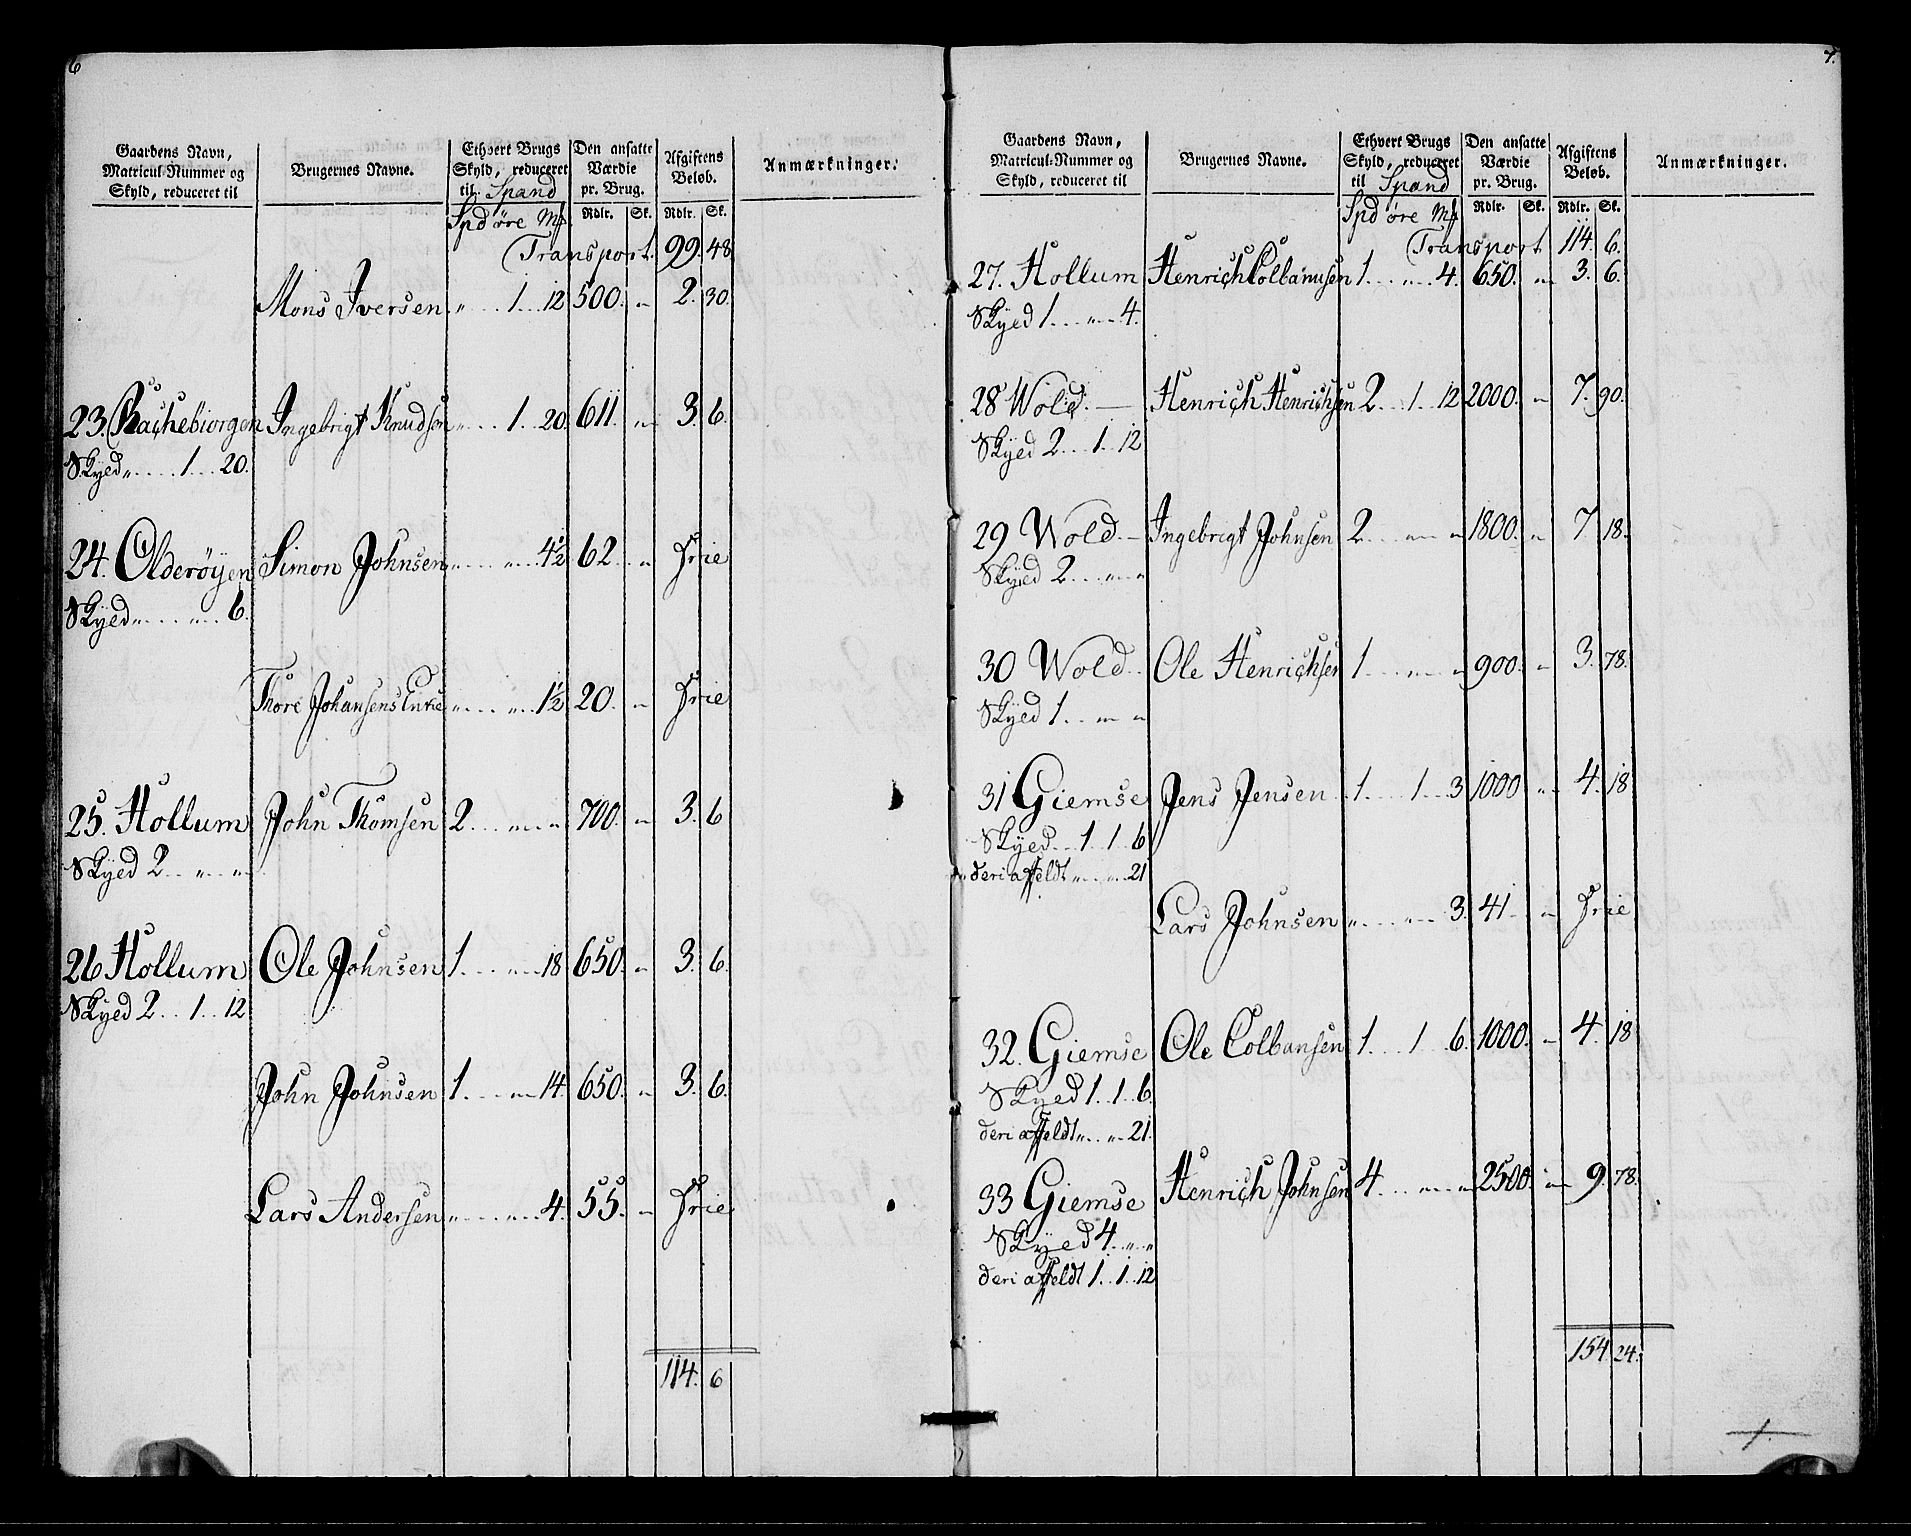 6
Gaardens Navn, Matricul-Nummer og Skyld, reduceret til
Brugernes Navne.
Ethvert Brugs Skyld, reduceret til Spand
Den ansatte Værdie pr. Brug.
Afgiftens Beløb.
Anmærkninger.
Spd øre Mf Rdlr. Sk. Rdlr. Sk.
Transport. 99. 48
Mons Iversen „ 1 12 500. „ 2. 30.
23. Rachebiorgen Ingebrigt Knudsøn „ 1 20. 611. „ 3. 6.
Skyed „ 1 20.
24. Olderöyen Simon Johnsen „ „ 4½ 62 „ Frie
Skyed „ „ 6.
Thore Johansens Enke „ „ 1½ 20. „ Frie
25. Hollum John Thomsen 2 „ „ 700. „ 3. 6
Skyed 2 „ „
26 Hollum Ole Johnsen 1 „ 18 650. „ 3. 6.
Skyed 2 1 12
John Johnsen 1 „ 14. 650. „ 3. 6.
Lars Andersen „ „ 4. 55. „ Frie
114. 6
7.
Gaardens Navn, Matricul-Nummer og Skyld, reduceret til
Brugernes Navne.
Ethvert Brugs Skyld, reduceret til Spand
Den ansatte Værdie pr. Brug.
Afgiftens Beløb.
Anmærkninger.
Spd øre Mf Rdlr. Sk. Rdlr. Sk.
Transport 114. 6.
27. Hollum Henrich Colbanusen 1 „ 4. 650. „ 3. 6.
Skyed 1 „ 4.
28 Wold. Henrich Henrichsen 2 1 12 2000. „ 7. 90.
Skyed 2 1 12
29 Wold. Ingebrigt Johnsen 2 „ „ 1800. „ 7 18.
Skyed 2 „ „
30 Wold. Ole Henrichsen 1 „ „ 900. „ 3. 78.
Skyed 1 „ „
31 Giemse Jens Jensen 1 1 3 1000 „ 4. 18
Skyed 1 1 6
deri affeldt „ „ 21
Lars Johnsen „ „ 3. 41 „ Frie
32. Giemse Ole Colbansen 1 1 6. 1000. „ 4. 18
Skyed 1 1 6.
deri affeldt „ „ 21.
33 Giemse Henrich Johnsen 4 „ „ 2500. „ 9. 78.
Skyed 4 „ „
deri affeldt 1 1 12
154. 24.